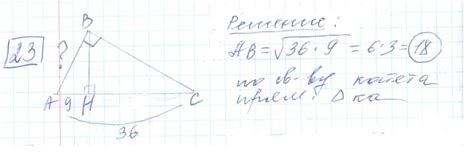 23
B
?
A 9 H C
36
Решение:
AB = √36·9 = 6·3 = 18
по св-ву катета
прям. Δ ка